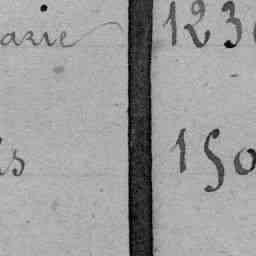 arie 123
is 150